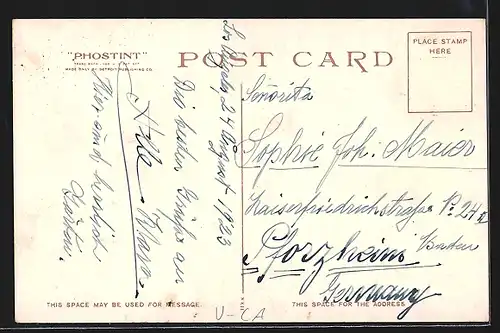 "PHOSTINT"
TRADE MARK
MADE ONLY BY DETROIT PUBLISHING CO.
POST CARD
PLACE STAMP
HERE
Los Angeles, 24 August 1923
Die besten Grüsse an
Alle
Señorita
Sophie Joh. Maier
Kaiserfriedrichstraße No. 24 II
Pforzheim
Baden
Germany
THIS SPACE MAY BE USED FOR MESSAGE.
THIS SPACE FOR THE ADDRESS
U-CA